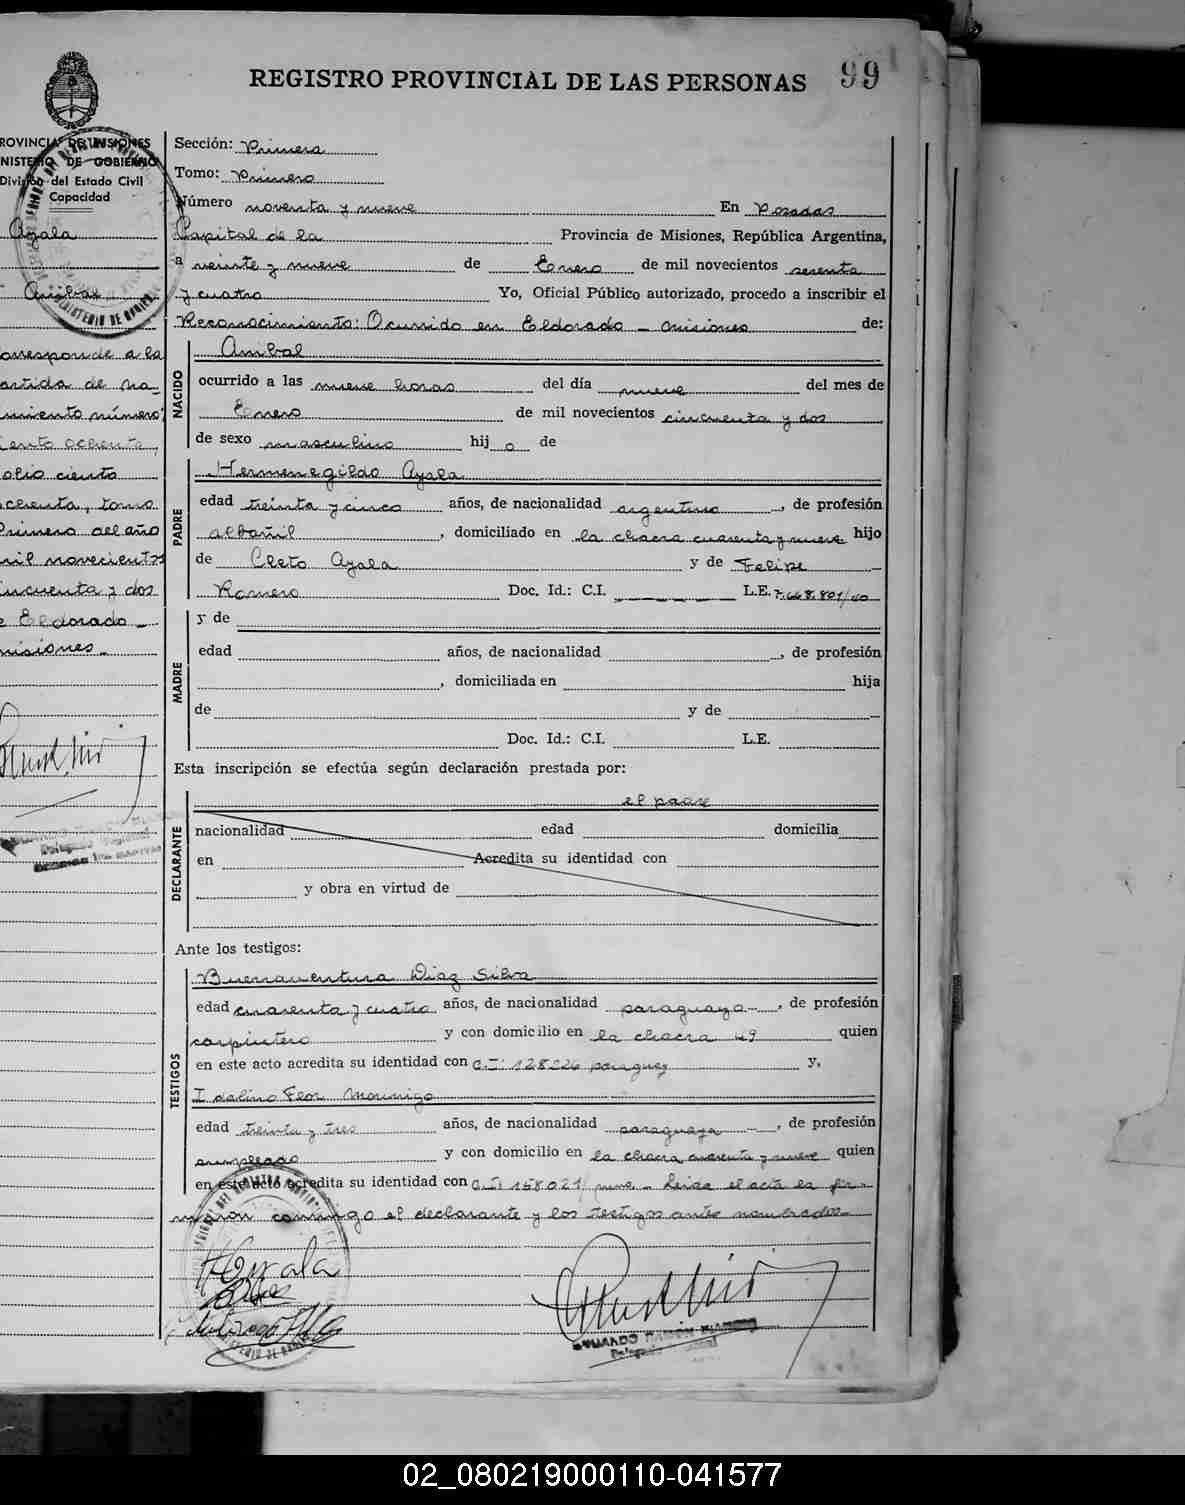 REGISTRO PROVINCIAL DE LAS PERSONAS 99
ROVINCIA DE MISIONES
NISTERIO DE GOBIERNO
División del Estado Civil
Capacidad
Ayala
Anibal
orresponde a la
artida de na_
imiento número:
iento ochenta,
olio ciento
ochenta, tomo
Primero del año
mil novecientos
incuenta y dos
e Eldorado _
misiones._
Sección: Primera
Tomo: Primero
Número noventa y nueve En Posadas
Capital de la Provincia de Misiones, República Argentina,
a veinte y nueve de Enero de mil novecientos sesenta
y cuatro Yo, Oficial Público autorizado, procedo a inscribir el
Reconocimiento: Ocurrido en Eldorado _ misiones de:
NACIDO
Anibal
ocurrido a las nueve horas del día nueve del mes de
Enero de mil novecientos cincuenta y dos
de sexo masculino hij o de
PADRE
Hermenegildo Ayala
edad treinta y cinco años, de nacionalidad argentino, de profesión
albañil, domiciliado en la chacra cuarenta y nueve hijo
de Cleto Ayala y de Felipe
Romero Doc. Id.: C.I. _ _ _ _ L.E. 7.668.801/60
MADRE
y de
edad años, de nacionalidad , de profesión
, domiciliada en hija
de y de
Doc. Id.: C.I. L.E.
Esta inscripción se efectúa según declaración prestada por:
DECLARANTE
el padre
nacionalidad edad domicilia
en Acredita su identidad con
y obra en virtud de
Ante los testigos:
TESTIGOS
Buenaventura Diaz Silva
edad cuarenta y cuatro años, de nacionalidad paraguaya, de profesión
carpintero y con domicilio en la chacra 49 quien
en este acto acredita su identidad con C.I: 128226 paraguay y,
Idalino Flor Morinigo
edad treinta y tres años, de nacionalidad paraguaya, de profesión
empleado y con domicilio en la chacra cuarenta y nueve quien
en este acto acredita su identidad con C.I: 158021/ _ Leida el acta la fir_
maron conmigo el declarante y los testigos antes nombrados._
HAyala
Delegado
02_080219000110-041577